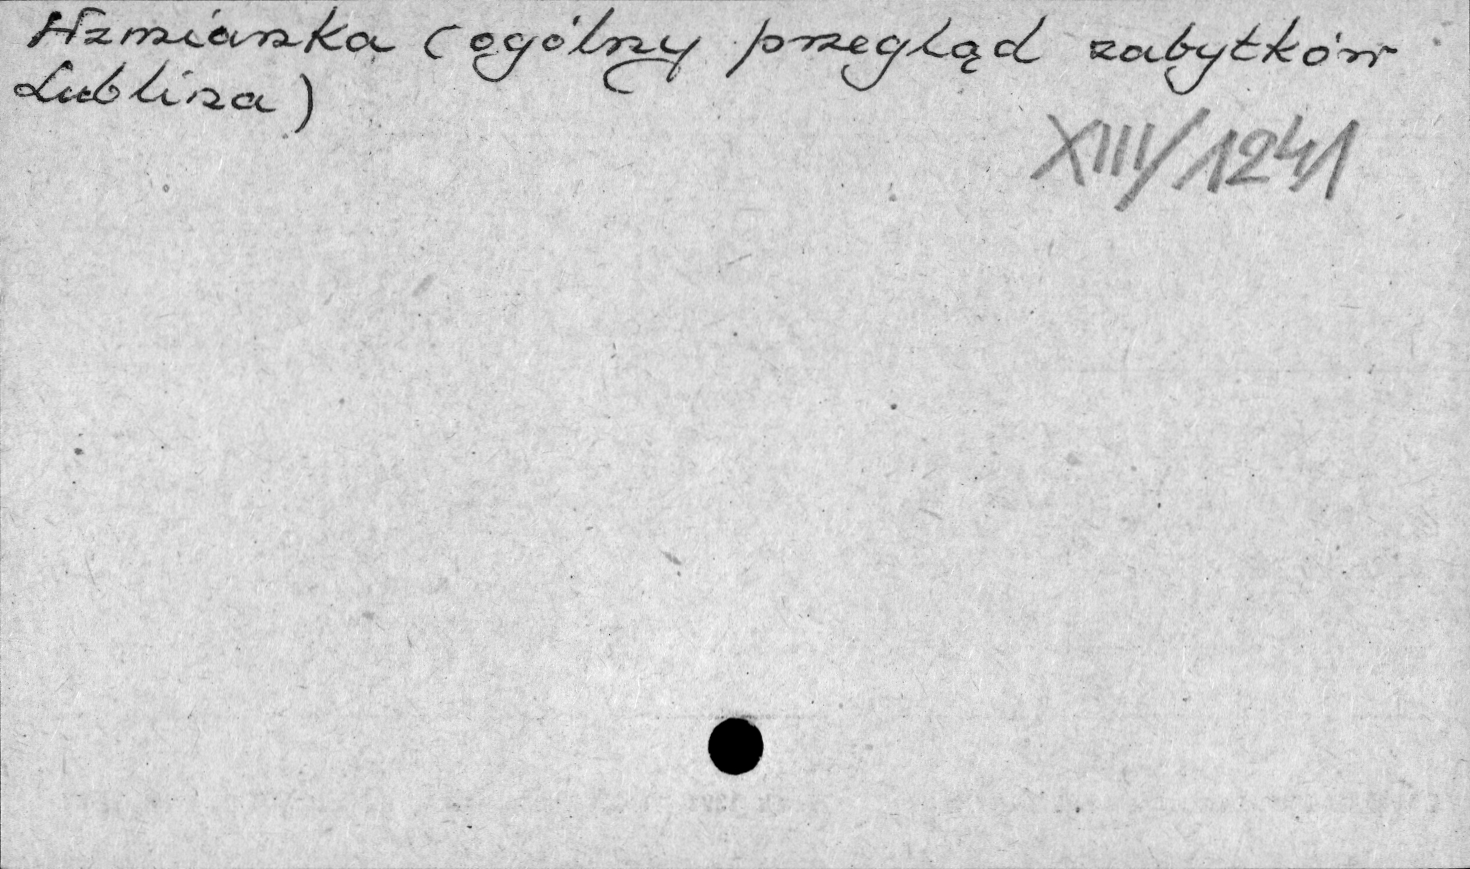 Wzmianka (ogólny przegląd zabytków
Lublina)
XIII/1241